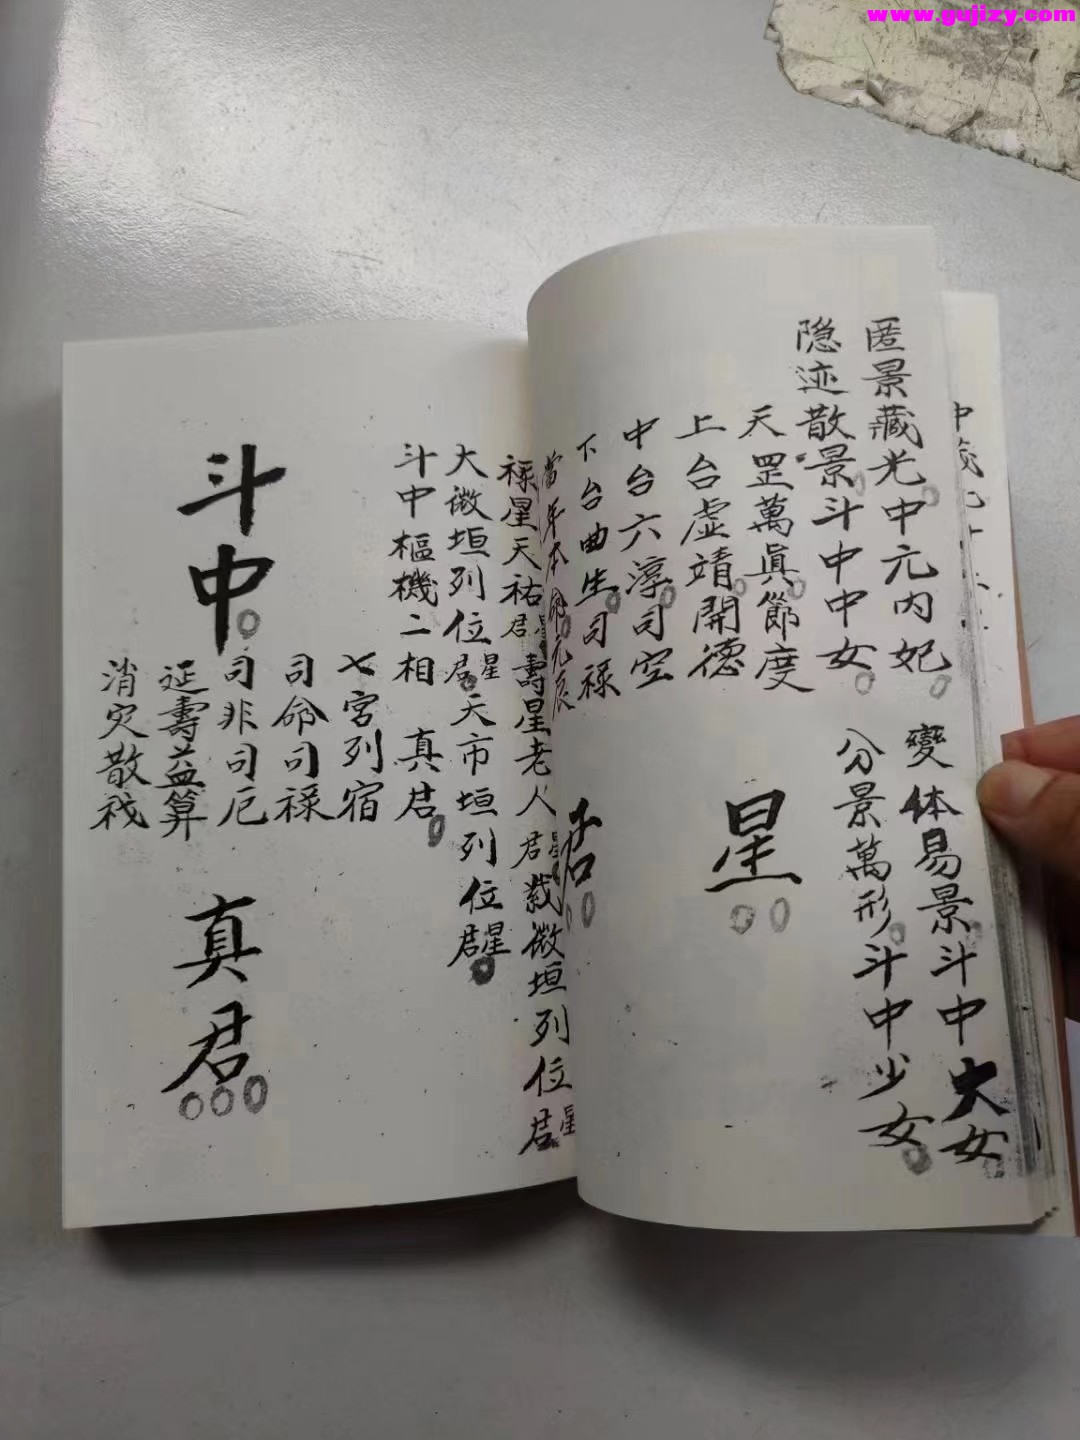 www.gujizy.com
匿景藏光中元内妃
變体易景斗中大女
隐迹散景斗中中女
分景萬形斗中少女
天罡萬真節度
上台虚靖開德
星
中台六淳司空
下台曲生司禄
君
當年本命元辰
禄星天祐星君
壽星老人星君
紫微垣列位星君
大微垣列位星君
天市垣列位星君
斗中樞機二相
真君
七宮列宿
司命司禄
斗中
司非司厄
真君
延壽益算
消灾散祅